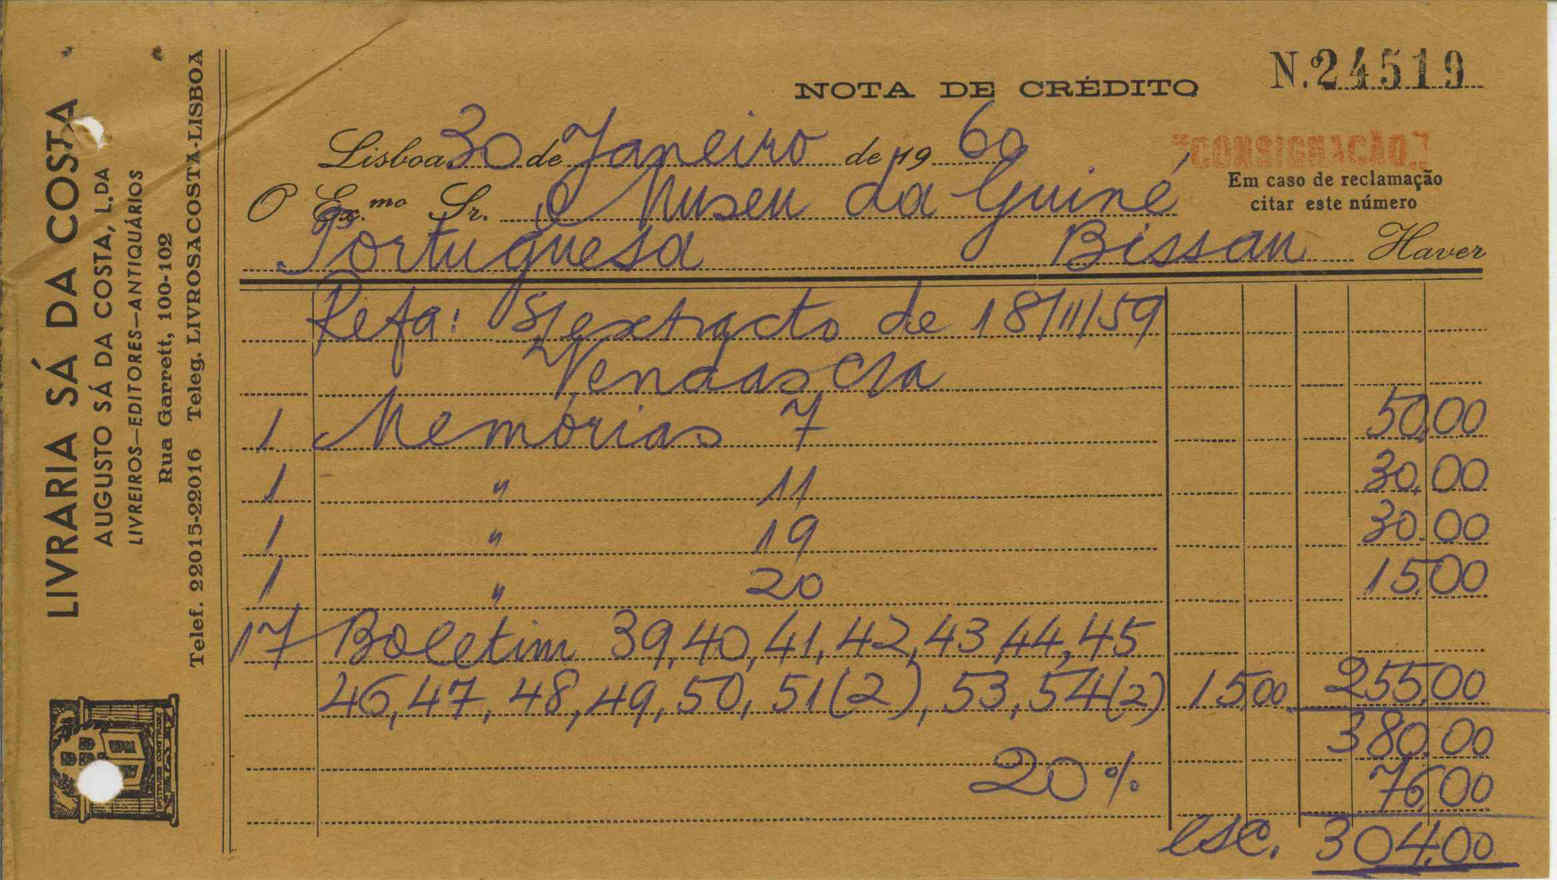 LIVRARIA SÁ DA COSTA
AUGUSTO SÁ DA COSTA, L.DA
LIVREIROS-EDITORES-ANTIQUÁRIOS
Rua Garrett, 100-102
Telef. 22015-22016 Teleg. LIVROSACOSTA-LISBOA
NOTA DE CRÉDITO N. 24519
Lisboa 30 de Janeiro de 1960
"CONSIGNAÇÃO"
Em caso de reclamação
citar este número
O Ex.mo Sr. O Museu da Guiné
Portuguesa Bissau Haver
Refa: S/ extracto de 18/11/59
Vendas
1 Memórias 7 50,00
1 " 11 30,00
1 " 19 30.00
1 " 20 15,00
17 Boletim 39, 40, 41, 42, 43, 44, 45
46, 47, 48, 49, 50, 51(2), 53, 54(2) 15,00 255,00
380,00
20% 76,00
esc. 304,00